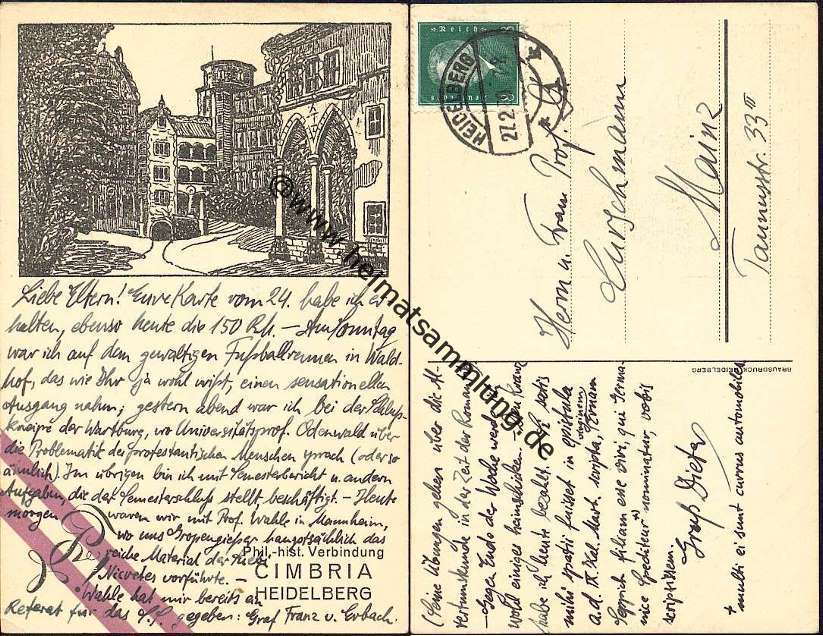 Liebe Eltern! Eure Karte vom 24. habe ich er-
halten, ebenso heute die 150 Rh. – Am Sonntag
war ich auf dem gewaltigen Fußballrennen in Wald-
hof, das wie Ihr ja wohl wißt, einen sensationellen
Ausgang nahm; gestern abend war ich bei der Schluß-
kneipe der Wartburg, wo Universitätsprof. Odenwald über
die Problematik des protestantischen Menschen sprach (oder so
ähnlich). Im übrigen bin ich mit Semesterbericht u. andern
Aufgaben die der Semesterschluß stellt, beschäftigt. – Heute
morgen waren wir mit Prof. Wahle in Mannheim,
wo uns Gropengießer hauptsächlich das
reiche Material der
vorführte. –
Wahle hat mir bereits ein
Referat für das S.S. gegeben: Graf Franz v. Erbach.
Phil.-hist. Verbindung
CIMBRIA
HEIDELBERG
Reich
HEIDELBERG
27.2.
Herrn u. Frau Prof.
Curschmann
Mainz
Taunusstr. 33 III
BRAUSDRUCK HEIDELBERG
(Seine Übungen gehen über die Al-
tertumskunde in der Zeit der Romanen)
– Gegen Ende der Woche werde ich
wohl einiges heimschicken. – Den Kranz
habe ich heute bezahlt. – Si satis
mihi spatii fuisset in epistula
a.d. IV. Kal. Mart. scripta, nomen
filiam esse viri, qui Germa-
nice "Spediteur" nominatur vobis
scripsissem.
Gruß Dieter
+ multi ei sunt currus automobiles
@www.heimatsammlung.de